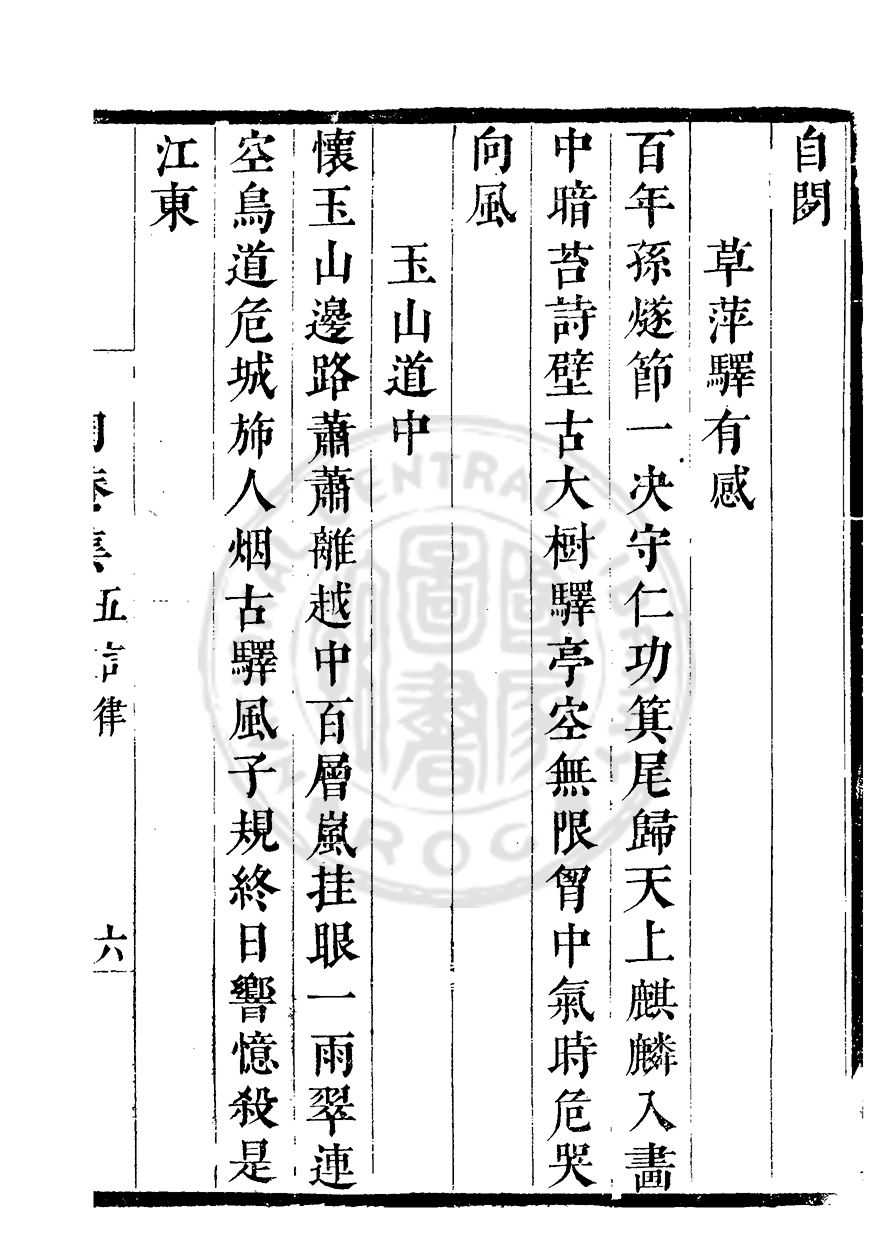 自閟
草萍驛有感
百年孫燧節一决守仁功箕尾歸天上麒麟入畫
中暗苔詩壁古大樹驛亭空無限胷中氣時危哭
向風
玉山道中
懷玉山邊路蕭蕭離越中百層嵐挂眼一雨翠連
空鳥道危城斾人烟古驛風子規終日響憶殺是
江東
五言律
六